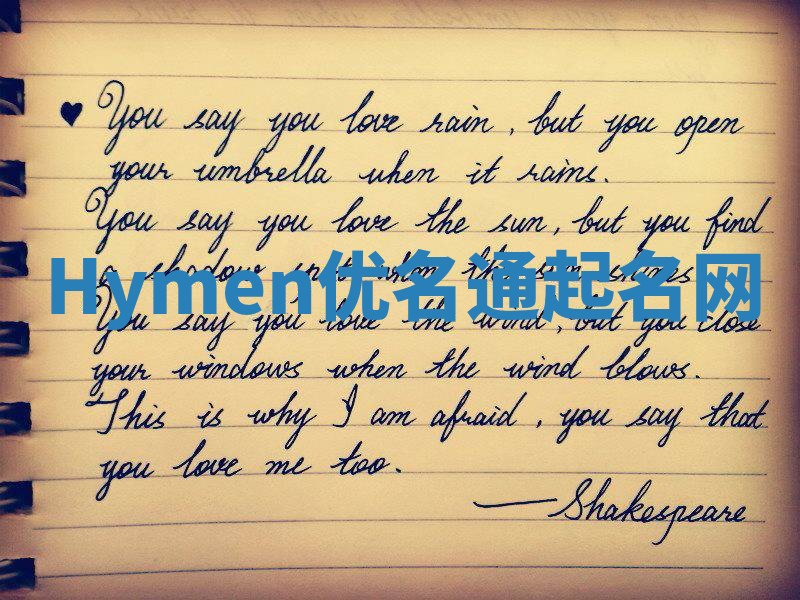 ♥ You say you love rain, but you open
your umbrella when it rains.
You say you love the sun, but you find
a shadow spot when the sun shines
Hymen优名通起名网
You say you love the wind, but you close
your windows when the wind blows.
This is why I am afraid, you say that
you love me too.
— Shakespeare